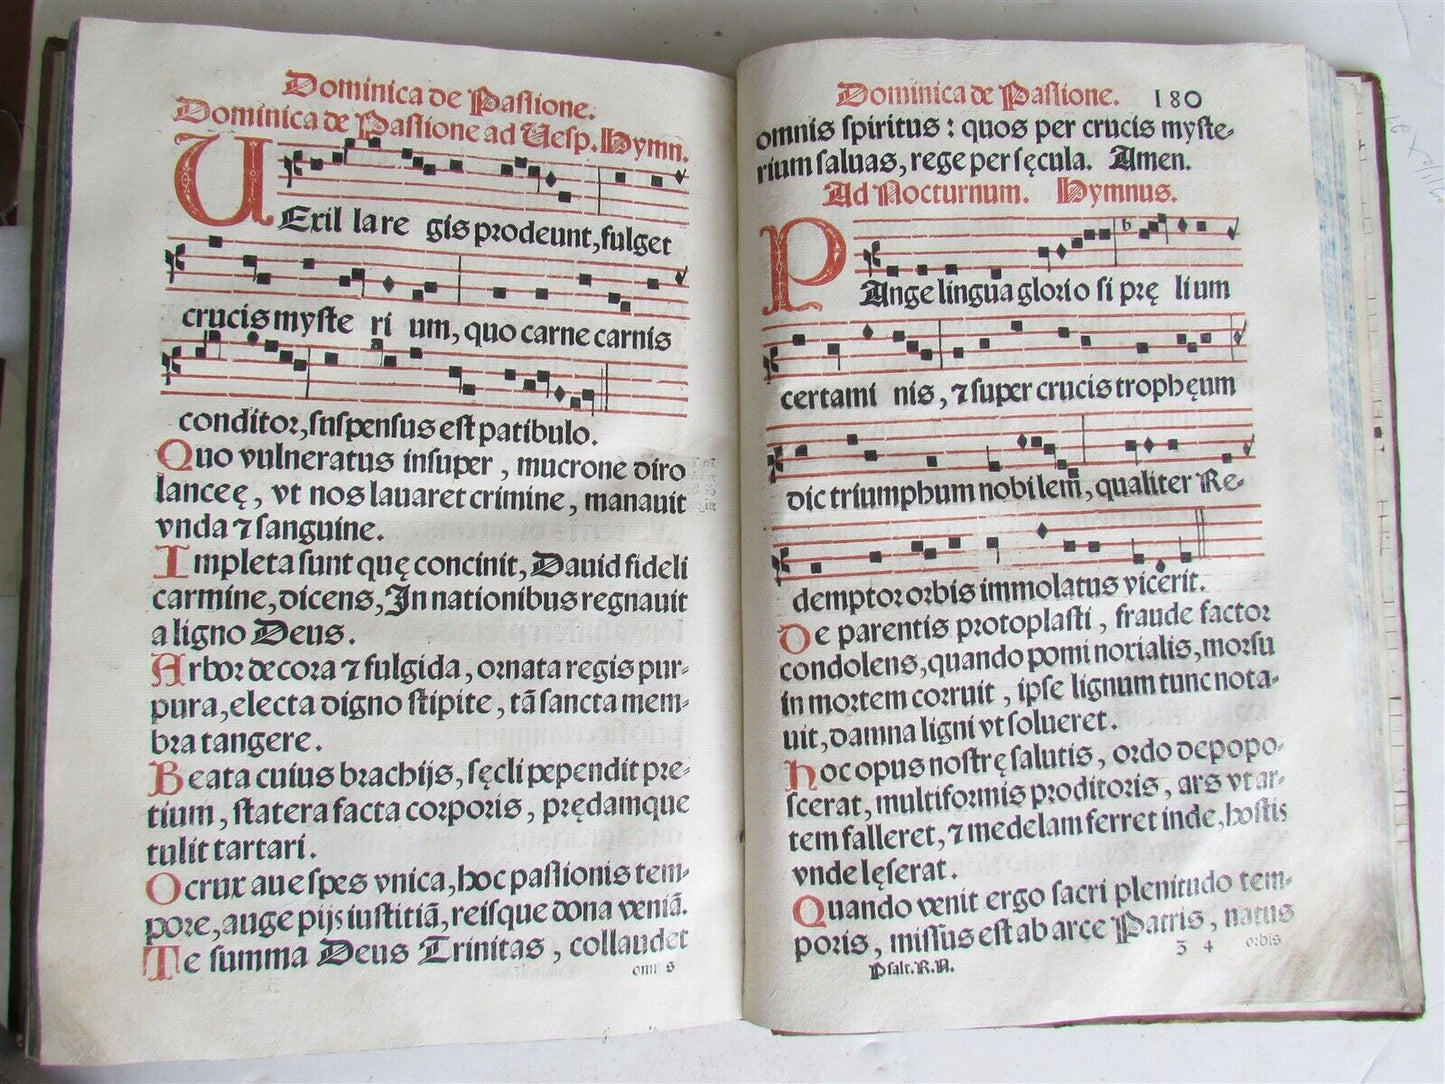 Dominica de Passione.
Dominica de Passione ad Vesp. Hymn.
VExil la re gis prodeunt, fulget
crucis myste ri um, quo carne carnis
conditor, suspensus est patibulo.
Quo vulneratus insuper, mucrone diro
lanceę, vt nos lauaret crimine, manauit
vnda ⁊ sanguine.
Impleta sunt quę concinit, Dauid fideli
carmine, dicens, In nationibus regnauit
a ligno Deus.
Arbor decora ⁊ fulgida, ornata regis pur-
pura, electa digno stipite, tã sancta mem-
bra tangere.
Beata cuius brachijs, sęcli pependit pre-
tium, statera facta corporis, prędamque
tulit tartari.
O crux aue spes vnica, hoc passionis tem-
pore, auge pijs iustitiã, reisque dona veniã.
Te summa Deus Trinitas, collaudet
omnis
Dominica de Passione. 180
omnis spiritus: quos per crucis myste-
rium saluas, rege per sęcula. Amen.
Ad Nocturnum. Hymnus.
PAnge lingua glorio si prę lium
certami nis, ⁊ super crucis trophęum
dic triumphum nobilem̃, qualiter Re-
demptor orbis immolatus vicerit.
De parentis protoplasti, fraude factor
condolens, quando pomi noxialis, morsu
in mortem corruit, ipse lignum tunc nota-
uit, damna ligni vt solueret.
Hoc opus nostrę salutis, ordo depopo-
scerat, multiformis proditoris, ars vt ar-
tem falleret, ⁊ medelam ferret inde, hostis
vnde lęserat.
Quando venit ergo sacri plenitudo tem-
poris, missus est ab arce Patris, natus
Psalt. R.N. 3 4 orbis